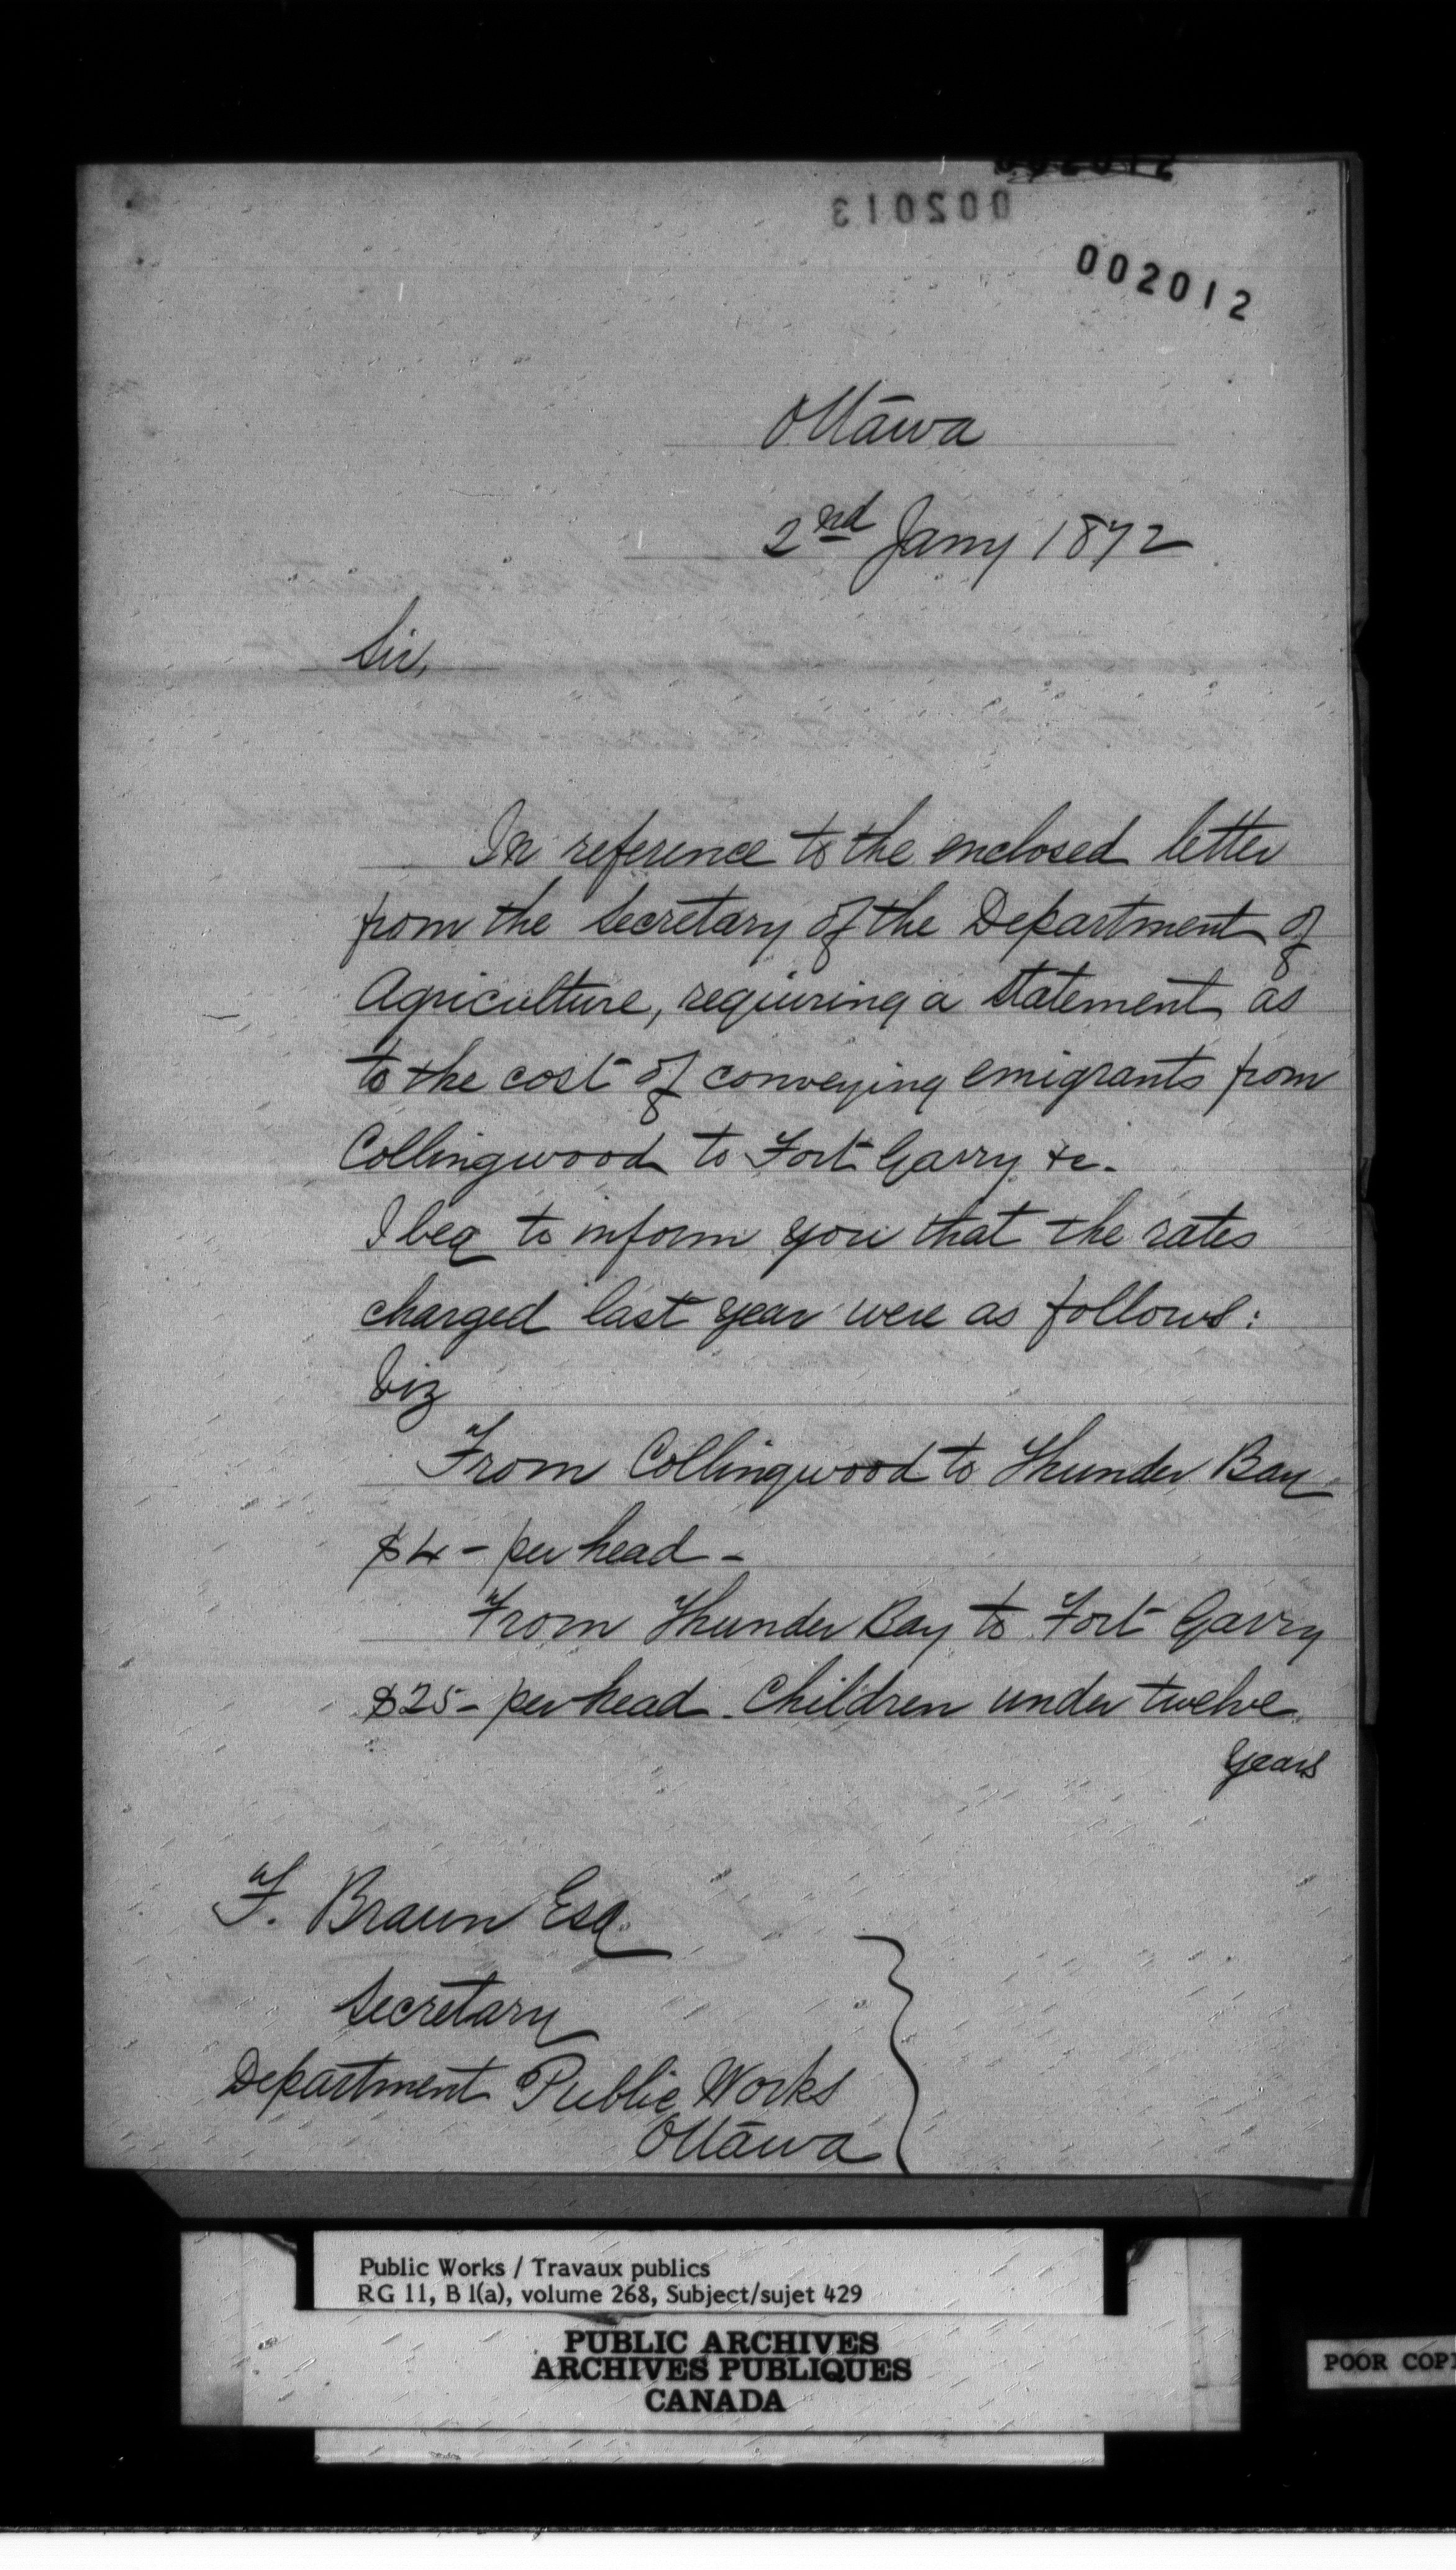 002012
002013
002012
Ottawa
2nd Jany 1872
Sir,
In reference to the enclosed letter
from the Secretary of the Department of
Agriculture, requiring a statement as
to the cost of conveying emigrants from
Collingwood to Fort Garry &c.
I beg to inform you that the rates
charged last year were as follows:
Viz
From Collingwood to Thunder Bay
$4 - per head -
From Thunder Bay to Fort Garry
$25 - per head. Children under twelve
years
F. Braun Esq.
Secretary
Department Public Works
Ottawa
Public Works / Travaux publics
RG 11, B 1(a), volume 268, Subject/sujet 429
PUBLIC ARCHIVES
ARCHIVES PUBLIQUES
CANADA
POOR COPI